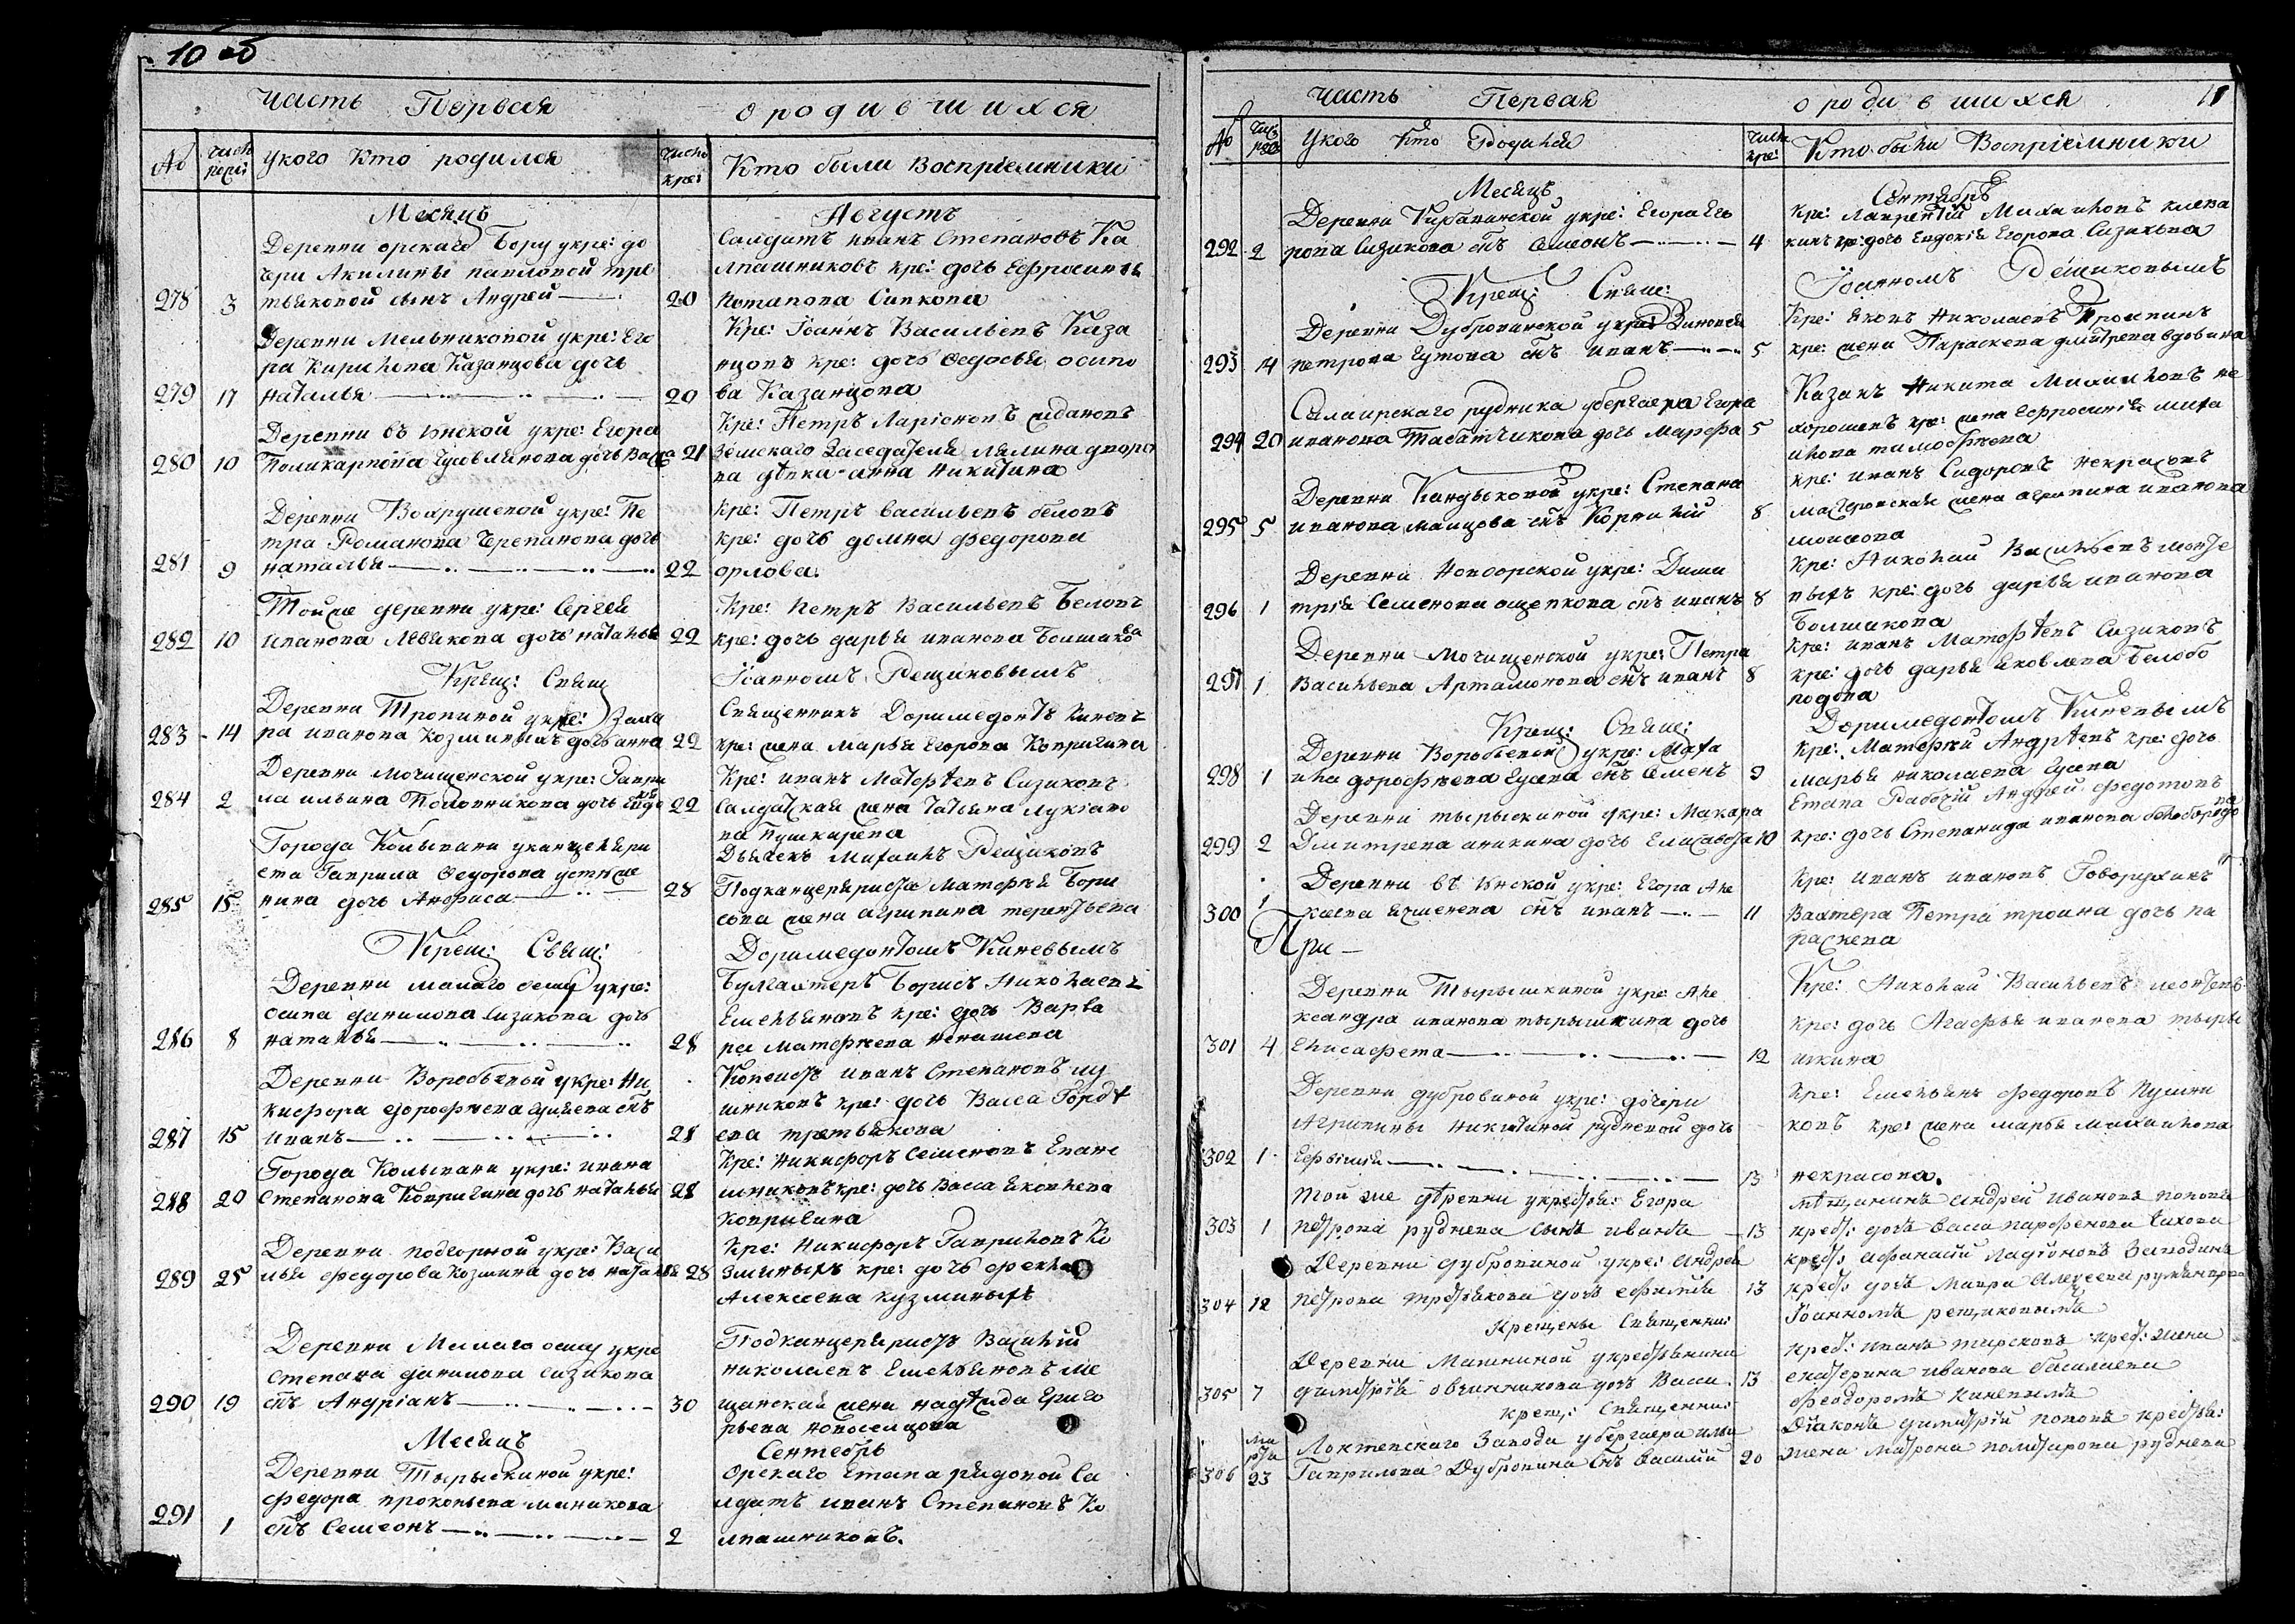 10 об
Часть Первая о родившихся
№ число роди: у кого кто родился число кре: Кто были Восприемники
Месяцъ Августъ
Деревни орскаго Бору укре: до
чери Акилины павловой тре
278 3 тьяковой сынъ Андрей 20
Салдатъ иванъ Степановъ Ка
лпашниковъ кре: дочь Ефросинья
потапова Сипкова
Деревни Мельниковой укре: Его
ра Кирилова Казанцова дочь
279 17 наталья 20
Кре: Іоаннъ Васильевъ Каза
нцовъ кре: дочь Федосья осипо
ва Казанцова
Деревни Егора
280 10 Поликарпова дочь 21
Кре: Петръ Ларіоновъ
земскаго Заседателя дворо
ва девка анна Никитина
Деревни Вахрушевой укре: Пе
тра Романова Черепанова дочь
281 9 наталья 22
Кре: Петръ васильевъ беловъ
кре: дочь домна федорова
орлова.
Тойже деревни укре: Сергея
282 10 иванова Левыкова дочь наталья 22
Кре: петръ Васильевъ Беловъ
кре: дочь дарья иванова Болшакова
Крещ: Свящ Іоанномъ Рещиковымъ
Деревни Тропиной укре: Заха
283 14 ра иванова козминыхъ дочь анна 22
Священникъ Доримедонтъ киневъ
кре: жена марья Егорова Копригина
Деревни мочищенской укре: Гаври
284 2 ла ильина Половникова дочь Евдокия 22
Кре: иванъ Матфеевъ Сизиковъ
Салдатская жена татьяна Лукіано
ва Пушкарева
Города Колывани у канцеляри
ста Гаврила Федорова устюже
285 15 нина дочь Анфиса 28
Дьячекъ михаилъ Рещиковъ
Подканцеляриста матфея Бори
сова жена агрипина терентьева
Крещ: Свящ: Доримедонтомъ Киневымъ
Деревни малаго оешу укре:
осипа данилова сизикова дочь
286 8 наталья 28
Булгахтеръ Борисъ Николаевъ
Емельяновъ кре: дочь Варва
ра матфеева
Деревни Воробьевой укре: Ни
кифора дорофеева сынъ
287 15 иванъ 28
Копеистъ иванъ Степановъ лу
шниковъ кре: дочь Васса Горде
ева третьякова
Города Колывани укре: ивана
288 20 Степанова Копригина дочь наталья 28
Кре: Никифоръ Семеновъ Епане
шниковъ кре: дочь Васса яковлева
копригина
Деревни подгорной укре: Васи
289 25 лья федорова козмина дочь наталья 28
Кре: Никифоръ Гавриловъ Ко
зминыхъ кре: дочь фекла
Алексеева кузминыхъ
Деревни Малаго оешу укре
степана данилова сизикова
290 19 снъ Андріанъ 30
Подканцеляристъ Василій
николаевъ Емельяновъ ме
щанская жена надежда Григо
рьева новоселцова
Месяцъ Сентебрь
Деревни Тырышкиной укре:
федора прокопьева
291 1 снъ Семеонъ 2
Орскаго Етапа рядовой са
лдатъ иванъ Степановъ Ко
лпашниковъ.
11
Часть Первая о родившихся
№ число рож у кого кто Родился число кре: Кто были Восприемники
Месяцъ Сентябрь
Деревни укре: Егора Его
292 2 рова Сизикова снъ Семеонъ 4
кре: Лаврентій Михаиловъ
кре: дочь Евдокія Егорова Сизикова
Крещ: Свящ: Іоанномъ Рещиковымъ
Деревни Дубровинской укре: Зиновья
293 14 петрова снъ иванъ 5
Кре: яковъ николаевъ
кре: жена Параскева дмитрева вдовина
Салаирскаго рудника Егора
294 20 иванова Табатчикова дочь Марфа 5
Казакъ Никита Михаиловъ не
хорошевъ кре: жена Ефросинія миха
илова тимофеева
Деревни Кандыковой укре: Степана
295 5 иванова снъ Корнилій 8
кре: иванъ Сидоровъ некрасовъ
жена агрипина иванова
Деревни укре: Дими
296 1 трія Семенова ощепкова снъ иванъ 8
Кре: Николай Васильевъ
кре: дочь дарья иванова
Болшакова
Деревни Мочищенской укре: Петра
297 1 Васильева Артамонова снъ иванъ 8
кре: иванъ Матфеевъ Сизиковъ
кре: дочь дарья яковлева Белобо
родова
Крещ: Свящ: Доримедонтомъ Киневымъ
Деревни Воробьевой укре: Миха
298 1 ила дорофеева снъ Семенъ 9
кре: Матфей Андреевъ кре: дочь
марья николаева
Деревни тырышкиной укре: Макара
299 2 Дмитрева аникина дочь Елисавета 10
Етапа Рабочій Андрей федотовъ
кре: дочь Степанида иванова белобородова
Деревни укре: Егора Але
300 1 ксеева снъ иванъ 11
Кре: иванъ ивановъ Говорухинъ
Вахтера Петра тронина дочь па
раскева
При
Деревни Тырышкиной укре: Але
ксандра иванова тырышкина дочь
301 4 Елисафета 12
Кре: Николай Васильевъ
кре: дочь Агафья иванова тыры
шкина
Деревни дубровиной укре: дочери
Агрипины никитиной рудневой дочь
302 1 Ефимія 13
Кре: Емельянъ федоровъ пушни
ковъ кре: жена марья михаилова
некрасова.
Той же деревни укрестья: Егора
303 1 петрова руднева сынъ иванъ 13
мещанинъ андрей ивановъ поповъ
крест: дочь васса парфенова
Деревни дубровиной укре: андрея
304 12 петрова третьякова дочь ефимія 13
крест: афанасій ладіоновъ Заводинъ
крест: дочь мавра алексеева
Крещены Священни: Іоанномъ рещиковымъ
Деревни Машниной укрестьянина
305 7 димитрія овчинникова дочь Васса 13
крест: иванъ ширсковъ крест: жена
екатерина иванова
Крещ: Священни: Феодоромъ киневымъ
Локтевскаго Завода
306 марта 23 Гаврилова Дубровина снъ василій 20
Діаконъ димитрій поповъ крестья:
жена матрона руднева